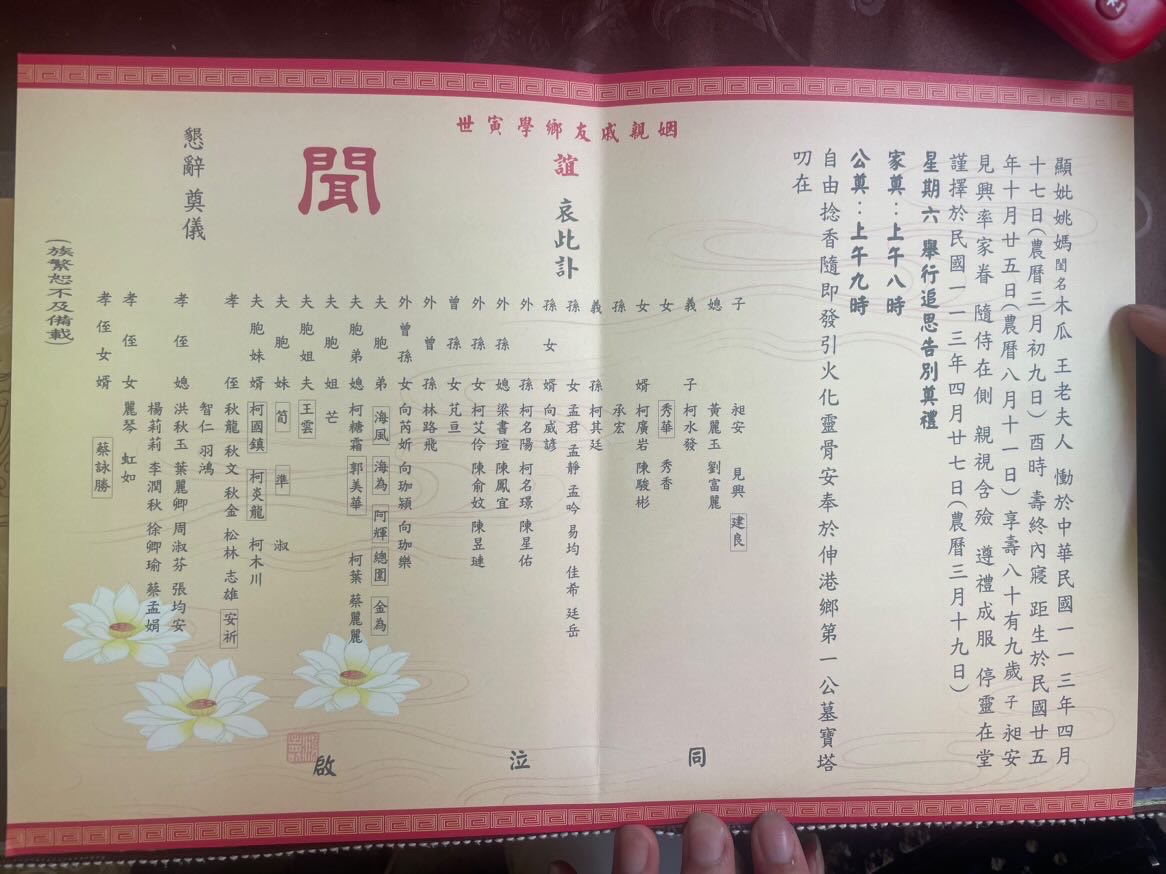 顯妣姚媽閨名木瓜 王老夫人 慟於中華民國一一三年四月
十七日(農曆三月初九日)酉時 壽終內寢 距生於民國廿五
年十月廿五日(農曆八月十一日)享壽八十有九歲 子 昶安
見興率家眷 隨侍在側 親視含殮 遵禮成服 停靈在堂
謹擇於民國一一三年四月廿七日(農曆三月十九日)
星期六 舉行追思告別奠禮
家奠：上午八時
公奠：上午九時
自由捻香隨即發引火化靈骨安奉於伸港鄉第一公墓寶塔
叨在
姻親戚友鄉學寅世
誼 哀此訃
聞
子 昶安 見興 建良
媳 黃麗玉 劉富麗
義子 柯水發
女 秀華 秀香
女婿 柯廣岩 陳駿彬
孫 承宏
義孫 柯其廷
孫女 孟君 孟靜 孟吟 易均 佳希 廷岳
孫女婿 向威諺
外孫 柯名陽 柯名璟 陳星佑
外孫媳 梁書瑄 陳鳳宜
外孫女 柯艾伶 陳俞妏 陳昱璉
曾孫女 芃亘
外曾孫 林路飛
外曾孫女 向芮妡 向珈潁 向珈樂
夫胞弟 海風 海為 阿輝 總圍 金為
夫胞弟媳 柯糖霜 郭美華 柯葉 蔡麗麗
夫胞姐 芒
夫胞姐夫 王雲
夫胞妹 筍 準 淑
夫胞妹婿 柯國鎮 柯炎龍 柯木川
孝侄 秋龍 秋文 秋金 松林 志雄 安祈
智仁 羽鴻
孝侄媳 洪秋玉 葉麗卿 周淑芬 張均安
楊莉莉 李潤秋 徐卿瑜 蔡孟娟
孝侄女 麗琴 虹如
孝侄女婿 蔡詠勝
同 泣 啟
懇辭 奠儀
(族繁恕不及備載)